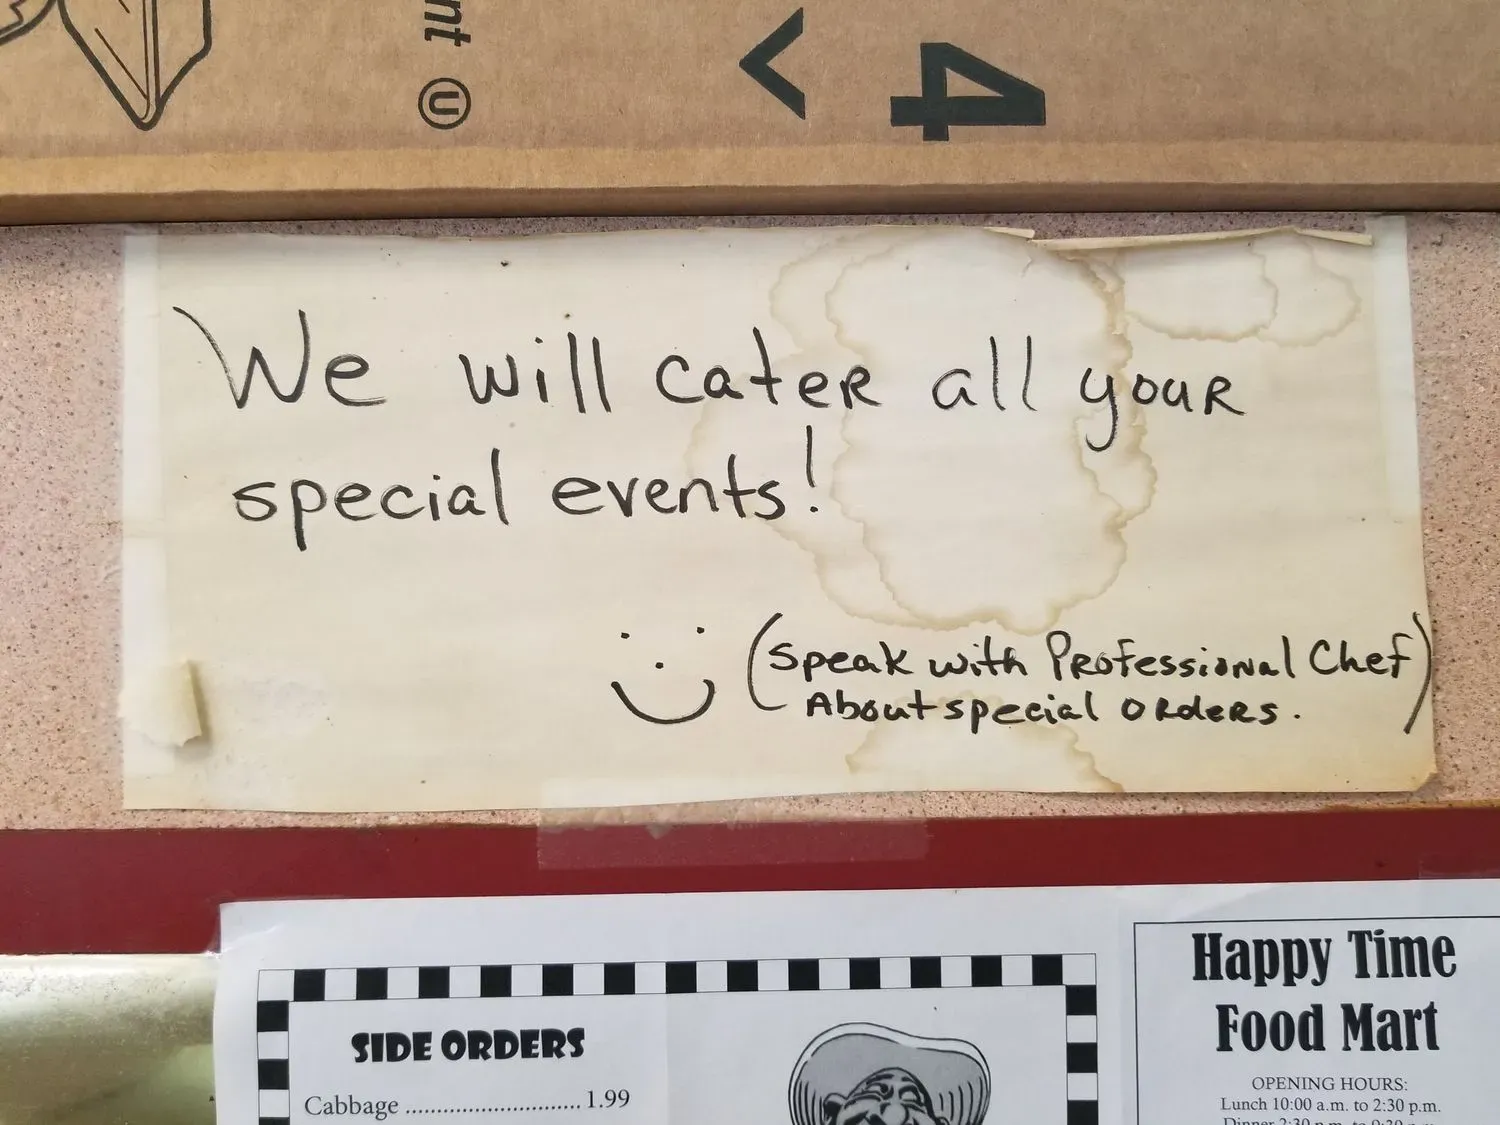 nt Ⓤ
4 >
We will cater all your
special events!
(Speak with Professional Chef)
About special orders.
SIDE ORDERS
Cabbage ............................ 1.99
Happy Time
Food Mart
OPENING HOURS:
Lunch 10:00 a.m. to 2:30 p.m.
Dinner 2:30 p.m. to